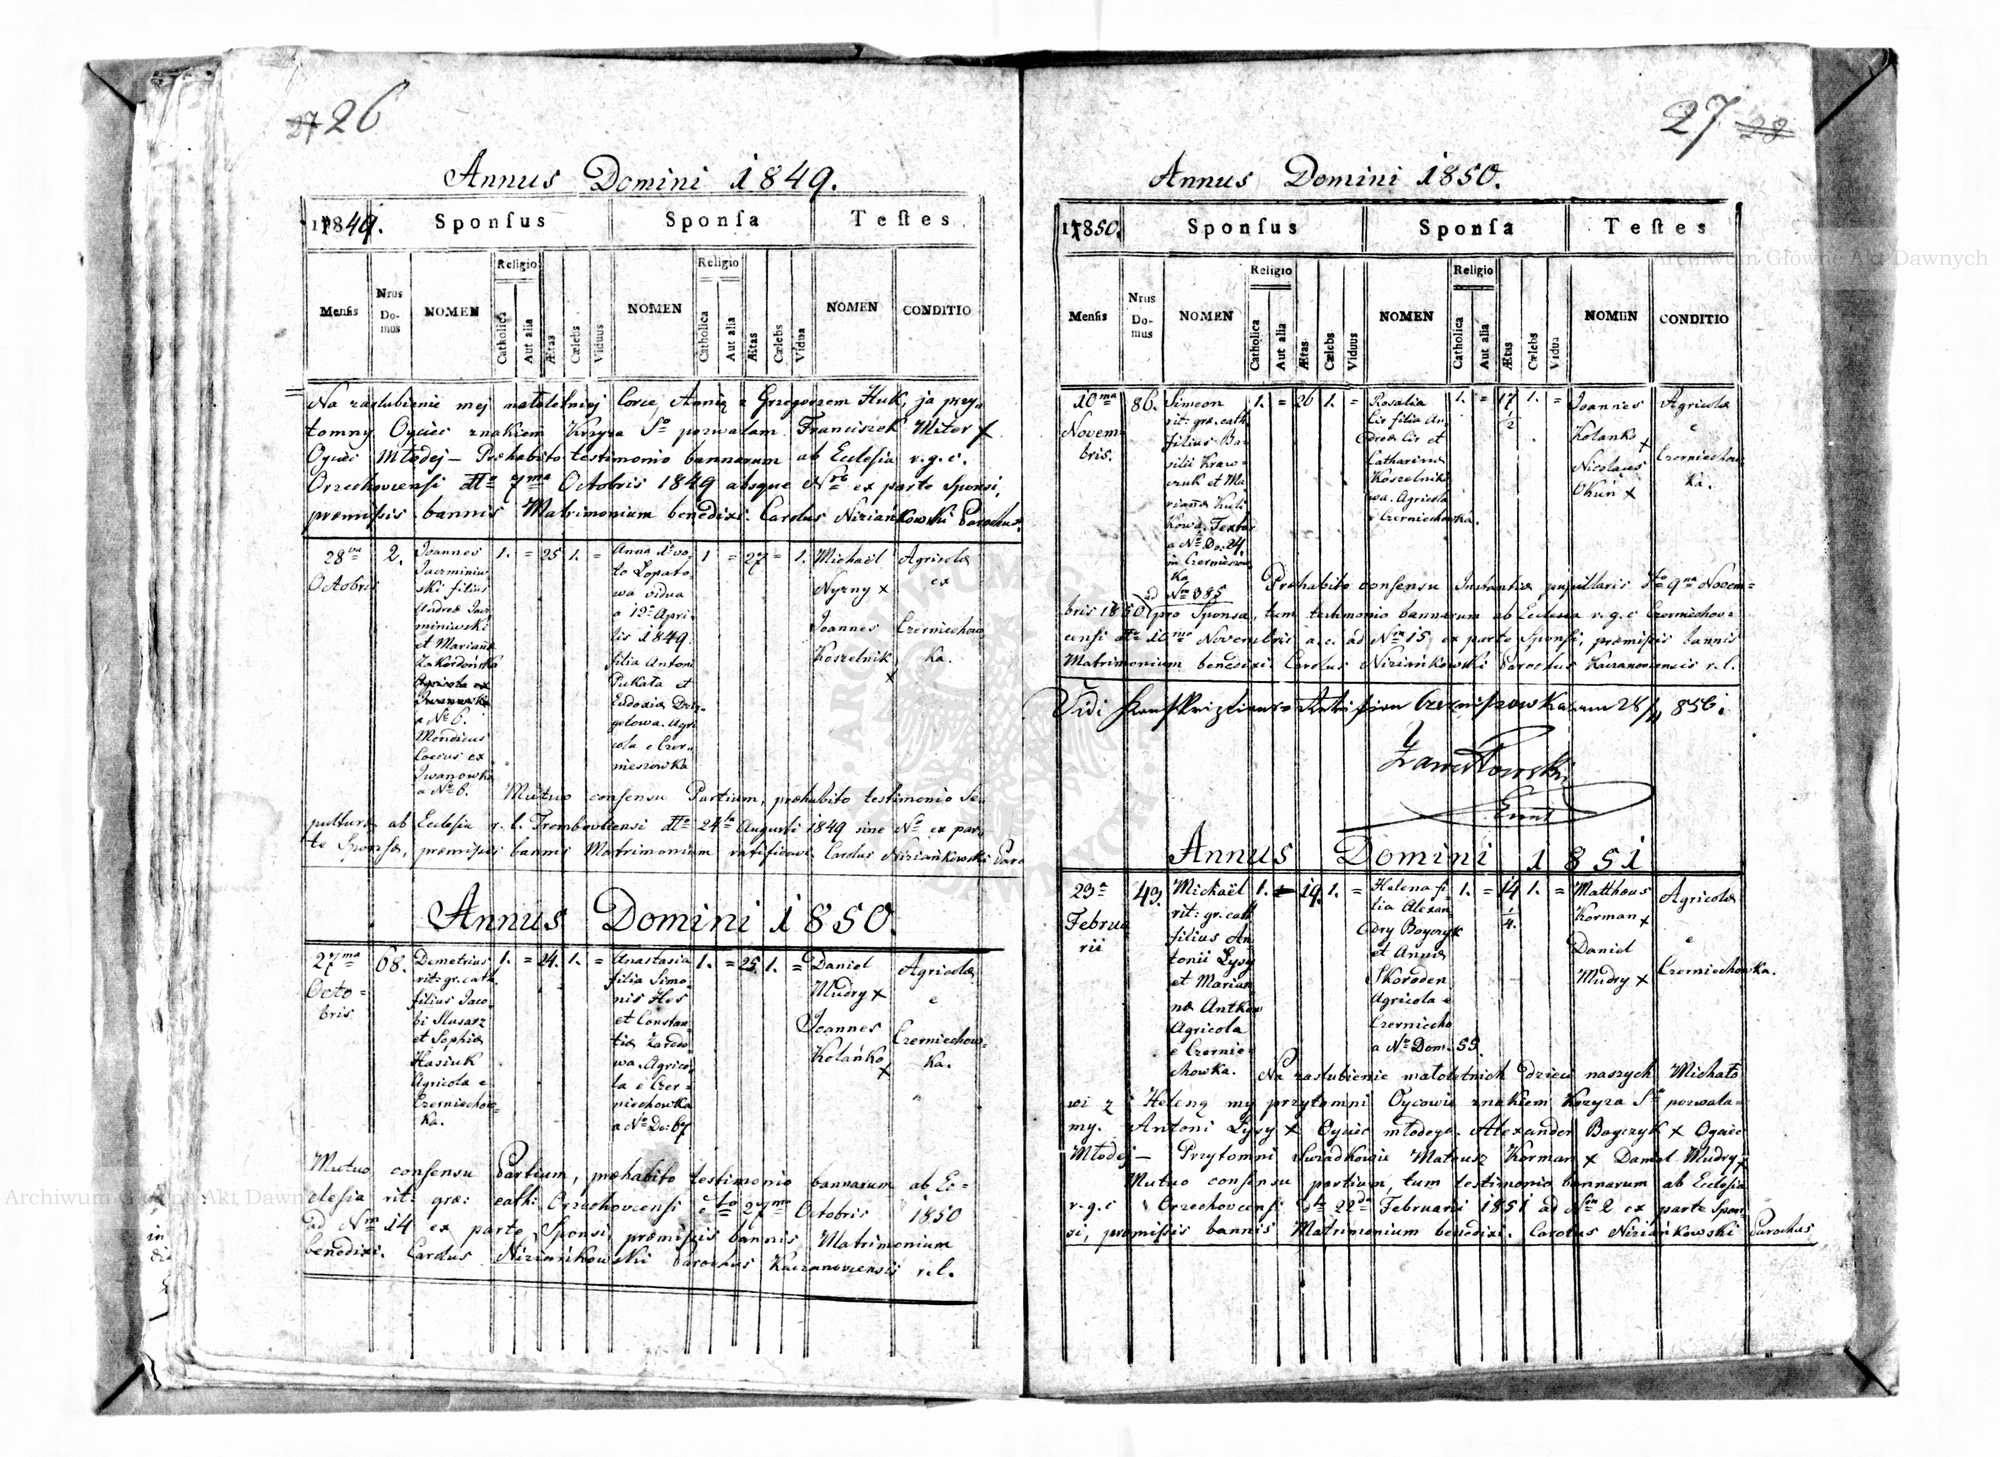 27 26
Annus Domini 1849.
1849. Sponſus Sponſa Teſtes
Menſis Nrus Domus NOMEN Religio Catholica Aut alia Ætas Cælebs Viduus NOMEN Religio Catholica Aut alia Ætas Cælebs Vidua NOMEN CONDITIO
Na zaślubienie mej małoletniej Corce, Annie z Grzegorzem Huk, ja przy=
tomny Oyciec znakiem Krzyża So pozwalam Franciszek Miter x
Oyciec Młodej — Præhabito testimonio bannorum ab Ecclesia r. g. c.
Orzechoviensi dto 7ma Octobris 1849 absque Nro ex parte Sponsi,
præmissis bannis Matrimonium benedixi. Carolus Niziańkowski Parochus
28va
Octobris
2.
Joannes
Jaczminiw
ski filius
Andreæ Jacz
miniwski
et Marianæ
Zakordońska
a No 6.
Mendicus
Coecus ex
Iwanowka
a No 6.
1. = 25 1. =
Anna 1o vo
to Łopato
wa vidua
a 12a Apri
lis 1849.
filia Antoni
Pukała et
Eudoxiæ Dzi
gołowa. Agri
cola e Czer
niechowka
1 = 27 = 1.
Michaël
Nyzny x
Joannes
Koszelnik
x
Agricolæ
ex
Czerniechow
ka.
Mutuo consensu Partium, præhabito testimonio Se
pulturæ ab Ecclesia r. l. Trembovliensi dto 24ta Augusti 1849 sine No ex par
te Sponsæ, præmissis bannis Matrimonium ratificavi Carolus Niziańkowski Paro
Annus Domini 1850.
27ma
Octo=
bris
68.
Demetrius
rit: gr. cath.
filius Jaco
bi Slusarz
et Sophiæ
Hasiuk
Agricola e
Czerniechow=
ka.
1. = 24. 1. =
Anastasia
filia Simo
nis Hos
et Constan
tiæ Zarodo
wa. Agrico
la e Czer=
niechowka
a No Do: 67
1. = 25. 1. =
Daniel
Mudry x
Joannes
Kolańko
x
Agricolæ
e
Czerniechow=
ka.
Mutuo consensu Partium, præhabito testimonio bannorum ab Ec=
clesia rit: græ: cath: Orzechoviensi dto 27ma Octobris 1850
ad Nrm 14 ex parte Sponsi, præmissis bannis Matrimonium
benedixi. Carolus Niziańkowski Parochus Kaczanoviensis r. l.
27 28
Annus Domini 1850.
1850. Sponſus Sponſa Teſtes
Menſis Nrus Domus NOMEN Religio Catholica Aut alia Ætas Cælebs Viduus NOMEN Religio Catholica Aut alia Ætas Cælebs Vidua NOMEN CONDITIO
10ma
Novem
bris.
86.
Simeon
rit: græ. cath
filius Ba=
silii Kraw=
czuk et Ma
riannæ Kuli
kowa. Textor
a No Do: 24.
in Czerniechow
ka
1. = 26 1. =
Rosalia
Cis filia An
dreæ Cis et
Catharinæ
Koszelniko
wa. Agricola
e Czerniechowka.
1. = 17 1/2 1. =
Joannes
Kolanko
x
Nicolaus
Okuń x
Agricolæ
e
Czerniechow
ka.
ad Nrm 385 Præhabito consensu Instantiæ pupillaris dto 9na Novem=
bris 1850 pro Sponsa, tum testimonio bannorum ab Ecclesia r. g. c Czerniechov=
iensi dto 10ma Novembris a. c. ad Nrm 15, ex parte Sponsi, præmissis bannis
Matrimonium benedixi. Carolus Niziańkowski Parochus Kaczanoviensis r. l.
Vidi
Annus Domini 1851
23a
Februa
rii
43.
Michaël
rit: gr. cath
filius An
tonii Łysy
et Marian
næ Antkow
Agricola
e Czernie=
chowka.
1. = 19. 1. =
Helena fi
lia Alexan
dry Boyczyk
et Annæ
Skoroden
Agricola e
Czerniecho
a No Dom. 55.
1. = 14 1/4. 1. =
Matthæus
Korman x
Daniel
Mudry x
Agricolæ
e
Czerniechowka.
Na zaslubienie małoletnich dzieci naszych Michało
wi z Heleną my przytomni Oycowie znakiem Krzyża So pozwala=
my. Antoni Łysy x Oyciec młodego. Alexander Boyczyk x Oyciec
Młodej — Przytomni Swiadkowie Mateusz Korman x Daniel Mudry x
Mutuo consensu partium, tum testimonio bannorum ab Ecclesia
r. g. c Orzechoviensi dto 22da Februarii 1851 ad Nrm 2 ex parte Spon
si, præmissis bannis Matrimonium benedixi. Carolus Niziańkowski Parochus
Archiwum Główne Akt Dawnych
Archiwum Główne Akt Dawnych